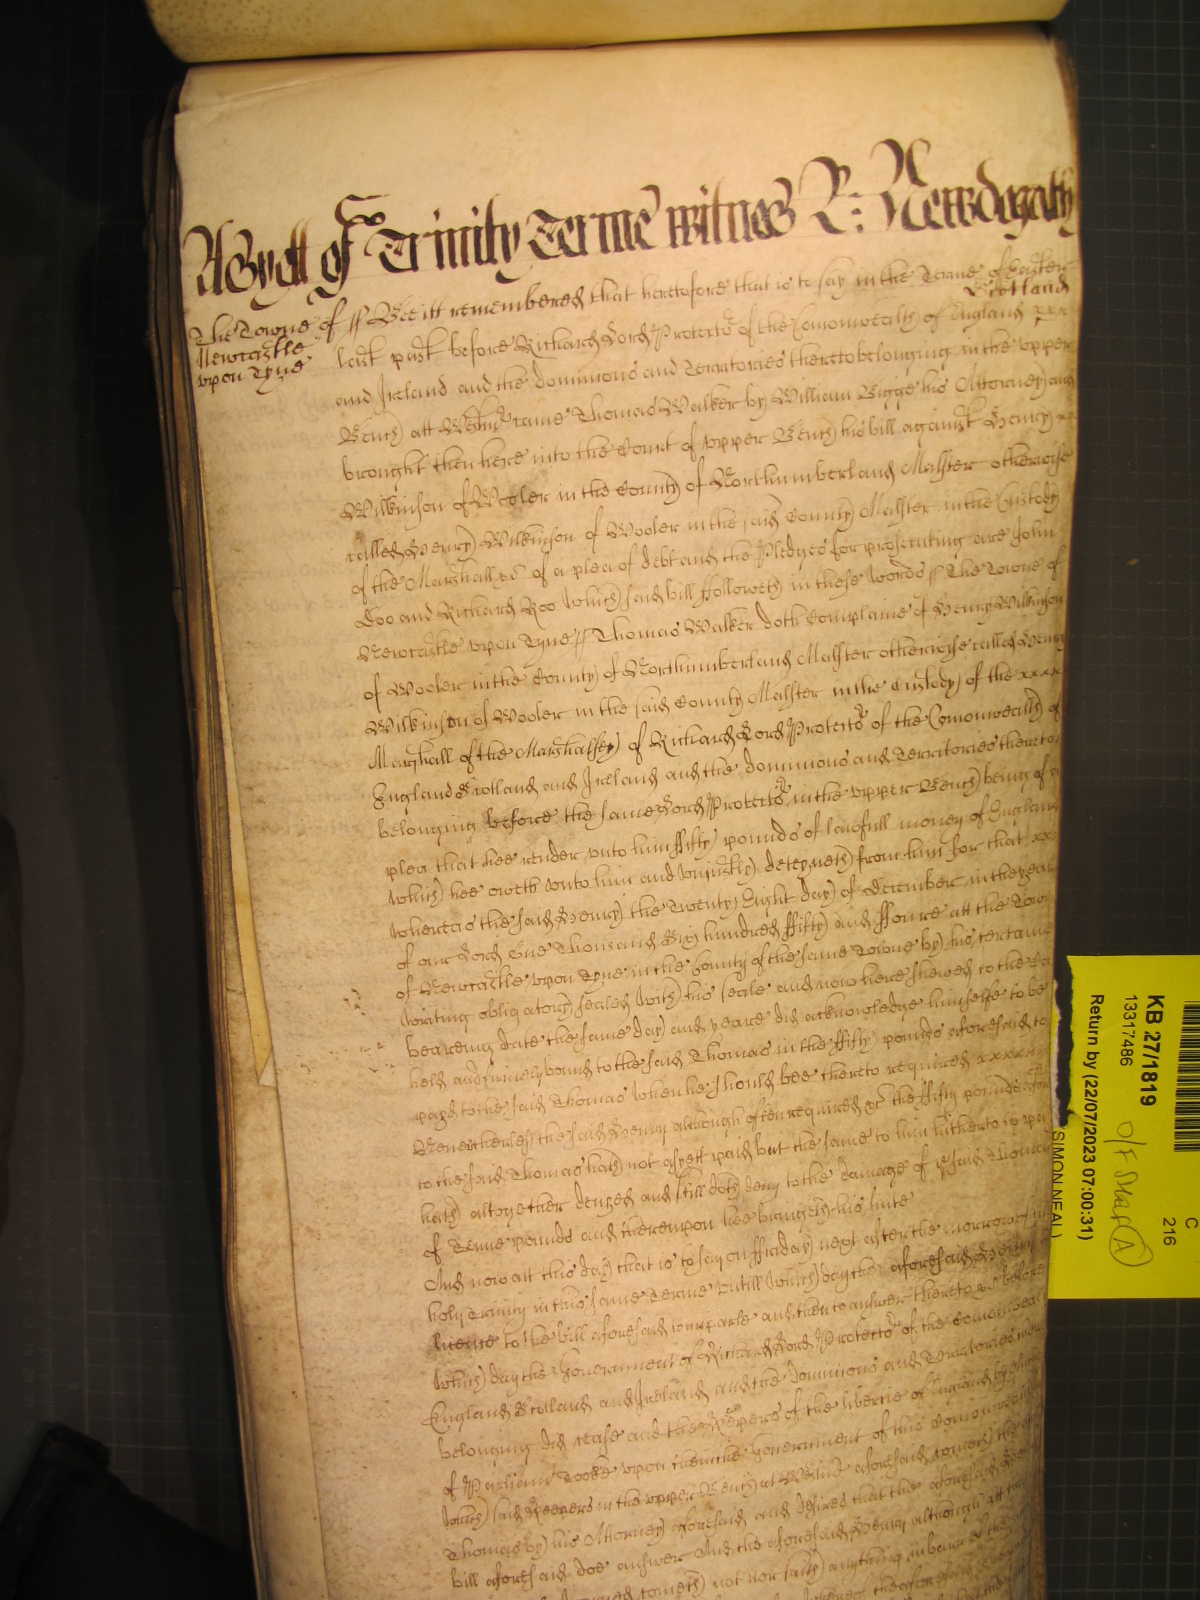 As yett of Trinity Terme witnes R: Newdegate
The Towne of ss Bee itt remembred that heretofore that is to say in the Terme of Easter
Newcastle
upon Tyne
last past before Richard Lord Protector of the Comonwealth of England Scotland xxx
and Ireland and the dominions and Territories thereto belonging in the upper
Bench att Westmr came Thomas Walker by William Bigge his Attorney and
brought then here into the Court of upper Bench his bill against Henry xx
Wilkinson of Wooler in the County of Northumberland Malster otherwise
called Henry Wilkinson of Wooler in the said County Malster in the Custody
of the Marshall &c of a plea of debt and the Pledges for prosecuting are John
Doo and Richard Roo which said bill ffolloweth in these words ss The Towne of
Newcastle upon Tyne ss Thomas Walker doth Complaine of Henry Wilkinson
of Wooler in the County of Northumberland Malster otherwise called Henry
Wilkinson of Wooler in the said County Malster in the Custody of the xxxx
Marshall of the Marshalsey of Richard Lord Protector of the Comonwealth of
England Scotland and Ireland and the dominions and Territories thereto
belonging before the same Lord Protector in the upper Bench being of a
plea that hee render unto him ffifty pounds of lawfull money of England
which hee oweth unto him and uniustly deteyneth from him for that xxx
whereas the said Henry the Twenty Eight day of December in the yeare
of our Lord One Thousand Six hundred ffifty and ffoure att the Towne
of Newcastle upon Tyne in the County of the same Towne by his certaine
writing obligatory sealed with his seale and now here shewed to the Co
beareing date the same day and yeare did acknowledge himselfe to be
held and firmely bound to the said Thomas in the ffifty pounds aforesaid to
payd to the said Thomas when he should bee thereto required xxxxx
Neverthelesse the said Henry although often required &c the ffifty pounds
to the said Thomas hath not as yett paid but the same to him hitherto to pa
hath altogether denyed and still doth deny to the damage of the said Thomas
of Tenne pounds and thereupon hee bringeth his suite
And now att this day that is to say on ffriday next after the morrow of
holy Trinity in this same Terme untill which day the aforesaid Henry
licence to the bill aforesaid to imparle and then to answer thereto &c before
which day the Government of Richard Lord Protector of the Comonwealth
England Scotland and Ireland and the dominions and Territories
belonging did cease and the Keepers of the libertie of England by
of Parliamt tooke upon them the Government of this Comonwealth
which said Keepers in the upper Bench at Westmr aforesaid cometh the
Thomas by his Attorney aforesaid and desires that the aforesaid Henry
bill aforesaid doe answer And the aforesaid Henry although att
cometh not nor saith anything in barr of the
KB 27/1819
13317486
Return by (22/07/2023 07:00:31)
SIMON NEAL)
C
216
A